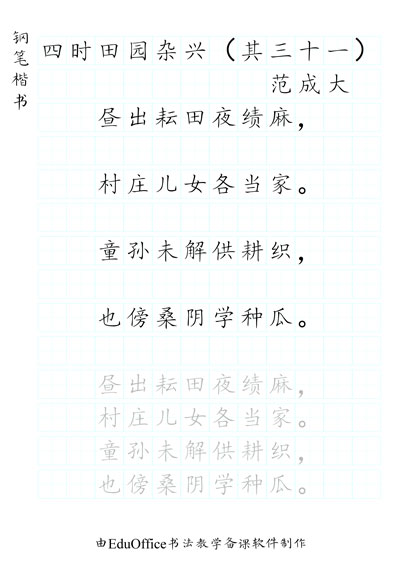 钢笔楷书
四时田园杂兴（其三十一）
范成大
昼出耘田夜绩麻，
村庄儿女各当家。
童孙未解供耕织，
也傍桑阴学种瓜。
昼出耘田夜绩麻，
村庄儿女各当家。
童孙未解供耕织，
也傍桑阴学种瓜。
由EduOffice书法教学备课软件制作